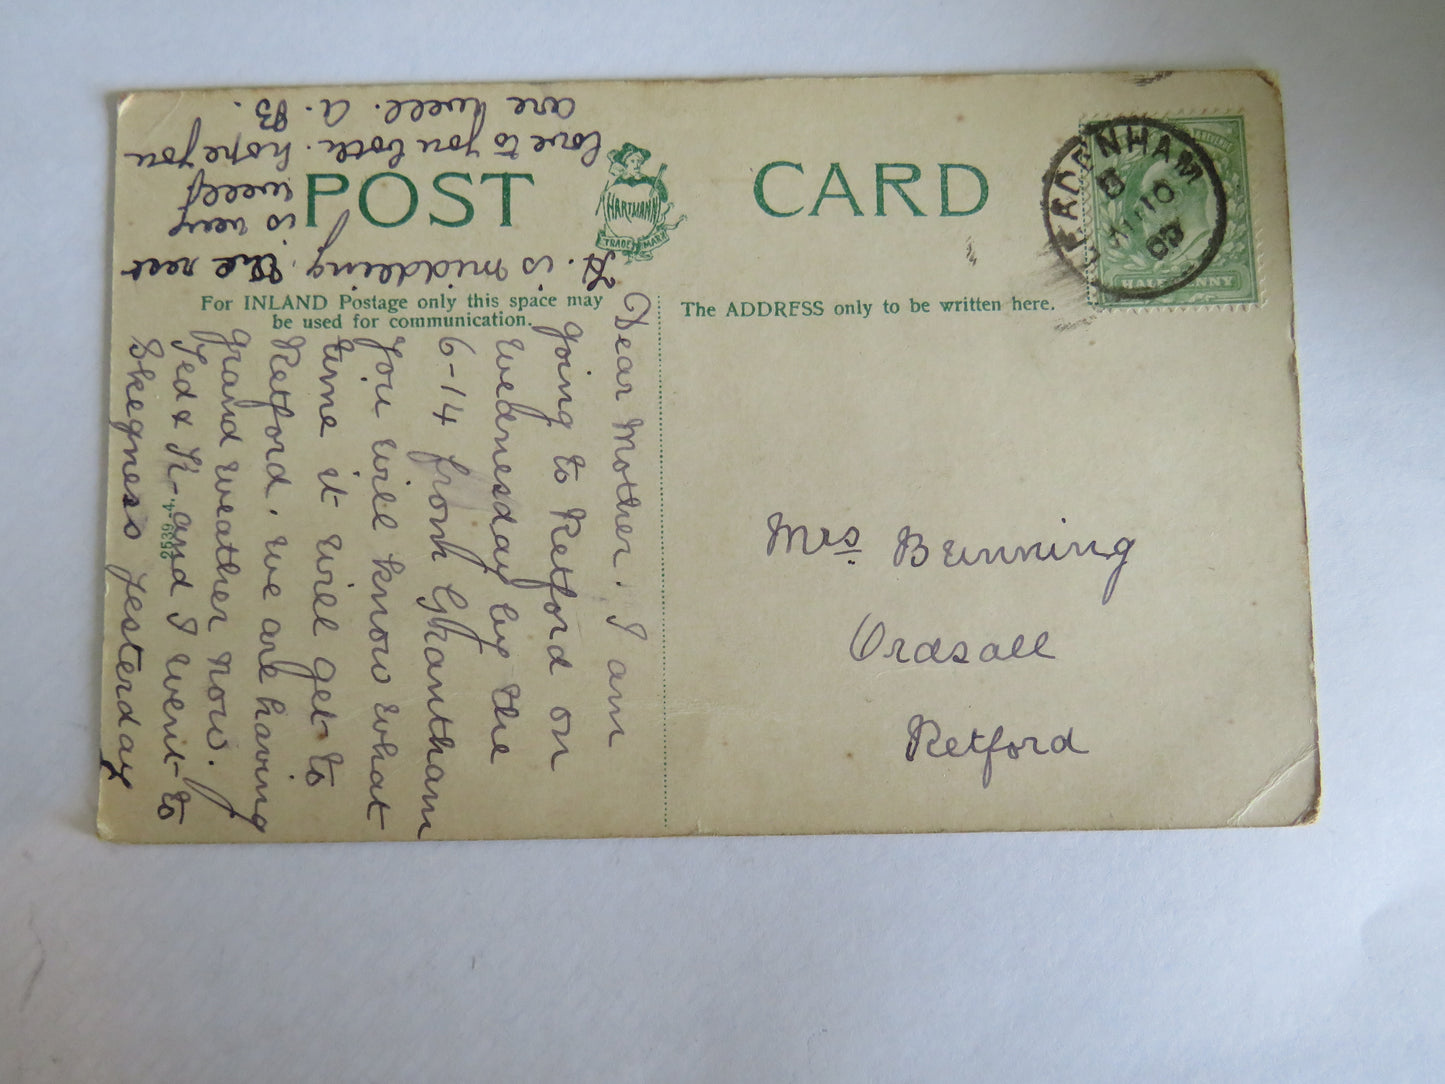 POST
CARD
HARTMANN
TRADE MARK
For INLAND Postage only this space may
be used for communication.
The ADDRESS only to be written here.
HALFPENNY
FRADENHAM
Dear Mother. I am
going to Retford on
Wednesday by the
6-14 from Ghantham
you will know what
time it will get to
Retford. We are having
grand weather now.
Ted & H- and I went to
Skegness yesterday
H. is middling. the rest
is very
well
love to you both. hope you
are well. A. B.
2539-4.
Mrs. Bunning
Ordsall
Retford